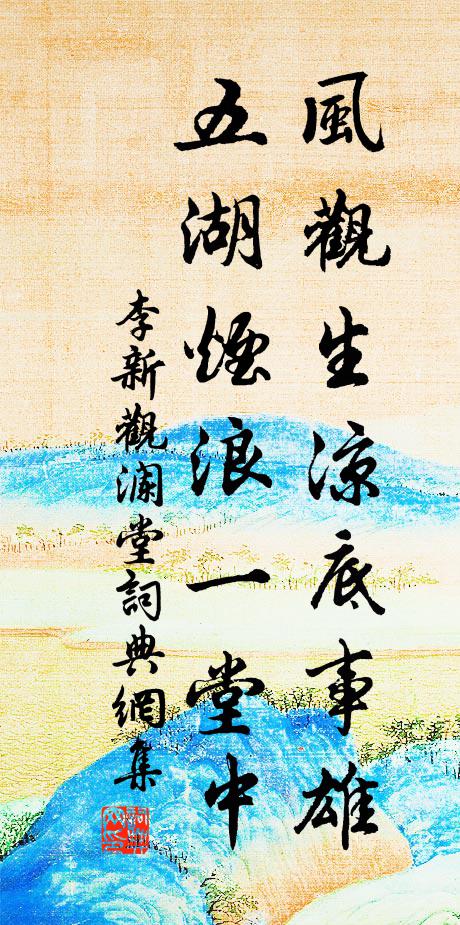 風觀生涼底事雄
五湖煙浪一堂中
李新觀瀾堂詞典網集